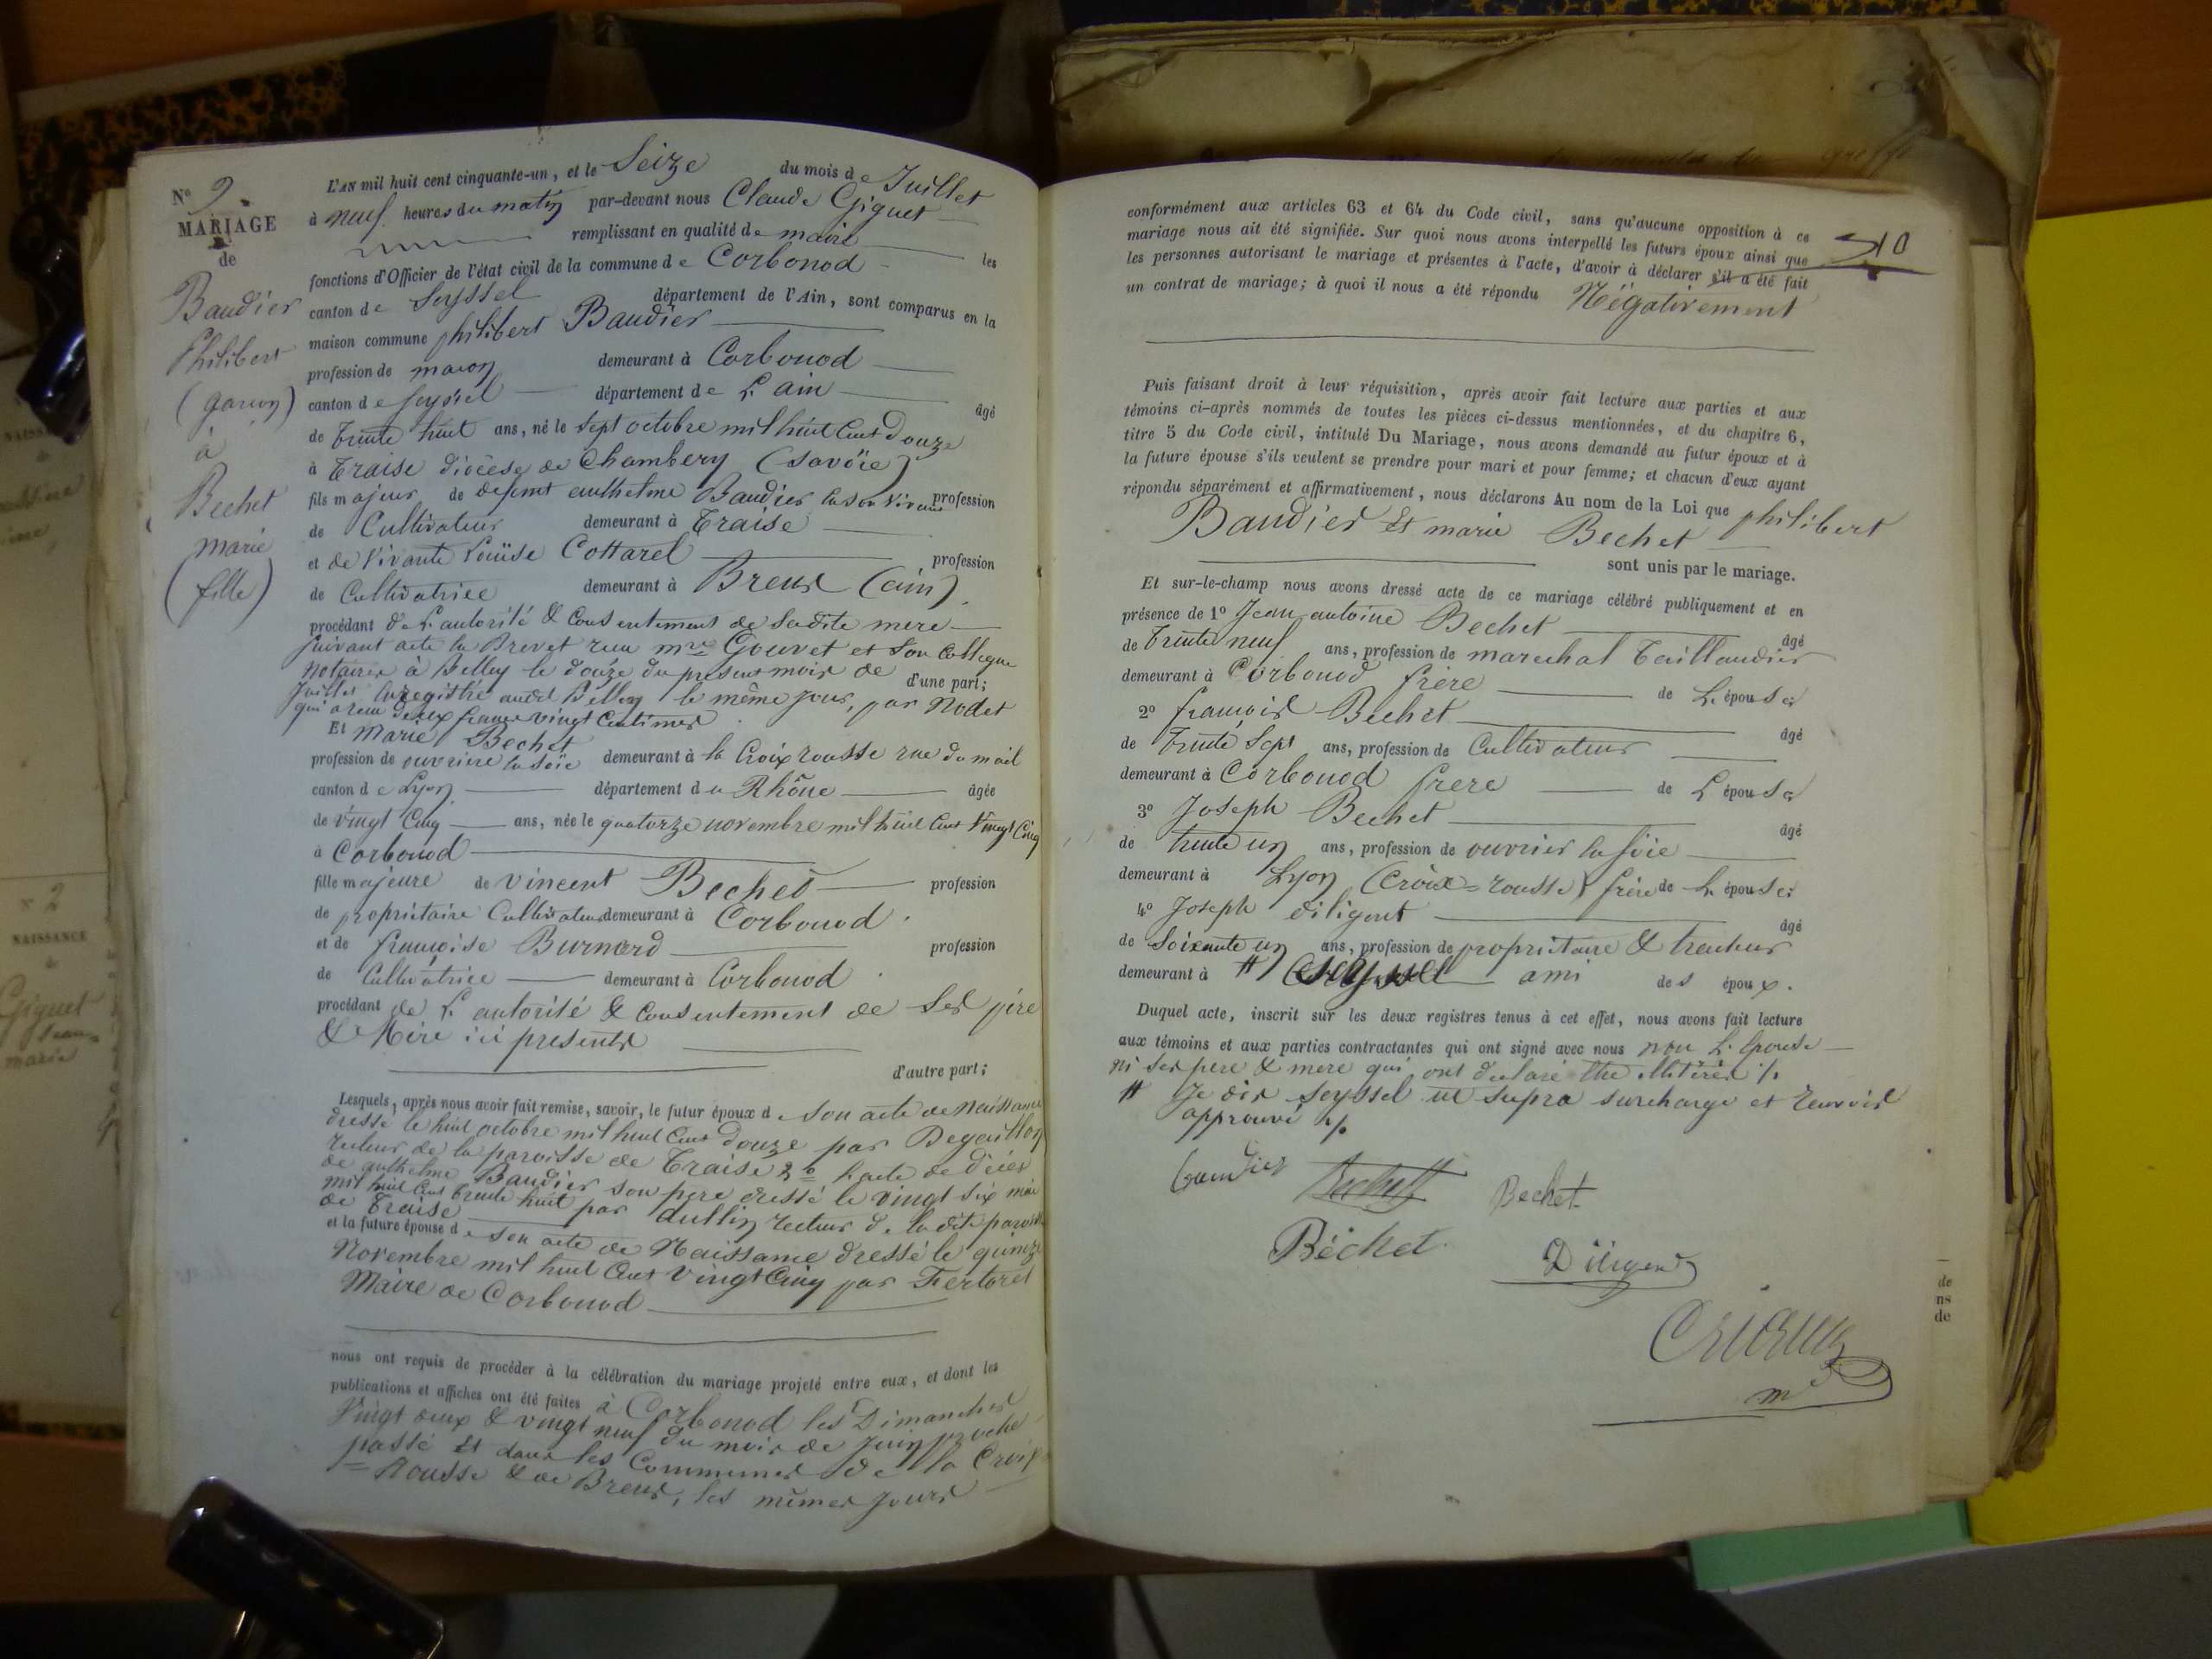 N° 9.
MARIAGE
de
Baudier
Philibert
(garçon)
à
Bechet
Marie
(fille)
L'AN mil huit cent cinquante-un, et le Seize du mois de Juillet
à neuf heures du matin par-devant nous Claude Giguet
remplissant en qualité de maire les
fonctions d'Officier de l'état civil de la commune de Corbonod
canton de Seyssel département de l'Ain, sont comparus en la
maison commune philibert Baudier
profession de maçon demeurant à Corbonod
canton de Seyssel département de L'ain âgé
de trente huit ans, né le sept octobre mil huit Cent douze
à Traise diocèse de Chambery (Savoïe)
fils majeur de defunt anthelme Baudier en son vivant profession
de Cultivateur demeurant à Traise
et de vivante Louise Cottarel profession
de Cultivatrice demeurant à Brens (ain).
procédant de L'autorité & Consentement de Sadite mere
suivant acte en Brevet reçu mre Gouvet et Son Collegue
notaires à Belley le douze du present mois de d'une part;
Juillet Enregistré audit Belley le même jour, par Nodet
qui a reçu deux francs vingt Centimes
Et Marie Bechet
profession de ouvriere en Soïe demeurant à la Croix rousse rue du mail
canton de Lyon département du Rhône âgée
de vingt Cinq ans, née le quatorze novembre mil huit Cent Vingt Cinq
à Corbonod
fille majeure de Vincent Bechet profession
de propriétaire Cultivateur demeurant à Corbonod.
et de françoise Burnord profession
de Cultivatrice demeurant à Corbonod.
procédant de L'autorité & Consentement de Ses père
& Mère ici presents
d'autre part;
Lesquels, après nous avoir fait remise, savoir, le futur époux de son acte de Naissance
dressé le huit octobre mil huit Cent douze par Degaillon
recteur de la paroisse de Traise 2° L'acte de décès
de anthelme Baudier son pere dressé le vingt six mai
mil huit Cent trente huit par dullin recteur de la dite paroisse
de Traise
et la future épouse de son acte de Naissance dressé le quinze
Novembre mil huit Cent Vingt Cinq par Fertoret
Maire de Corbonod
nous ont requis de procéder à la célébration du mariage projeté entre eux, et dont les
publications et affiches ont été faites à Corbonod les Dimanches
Vingt deux & vingt neuf du mois de Juin proche
passé Et dans les Communes de la Croix
=Rousse & de Brens, les mêmes jours
conformément aux articles 63 et 64 du Code civil, sans qu'aucune opposition à ce
mariage nous ait été signifiée. Sur quoi nous avons interpellé les futurs époux ainsi que
les personnes autorisant le mariage et présentes à l'acte, d'avoir à déclarer s'il a été fait
un contrat de mariage; à quoi il nous a été répondu Négativement
Puis faisant droit à leur réquisition, après avoir fait lecture aux parties et aux
témoins ci-après nommés de toutes les pièces ci-dessus mentionnées, et du chapitre 6,
titre 5 du Code civil, intitulé Du Mariage, nous avons demandé au futur époux et à
la future épouse s'ils veulent se prendre pour mari et pour femme; et chacun d'eux ayant
répondu séparément et affirmativement, nous déclarons Au nom de la Loi que philibert
Baudier Et marie Bechet
sont unis par le mariage.
Et sur-le-champ nous avons dressé acte de ce mariage célébré publiquement et en
présence de 1° Jean antoine Bechet âgé
de trente neuf ans, profession de marechal Taillandier
demeurant à Corbonod frère de L'épouse
2° françois Bechet âgé
de trente Sept ans, profession de Cultivateur
demeurant à Corbonod frere de L'épouse
3° Joseph Bechet âgé
de trente un ans, profession de ouvrier en soie
demeurant à Lyon (Croix=rousse) frère de L'épouse
4° Joseph diligent âgé
de Soixante un ans, profession de propriétaire & traiteur
demeurant à # Seyssel ami des époux.
Duquel acte, inscrit sur les deux registres tenus à cet effet, nous avons fait lecture
aux témoins et aux parties contractantes qui ont signé avec nous non L'Epouse
ni ses pere & mere qui ont declaré être illitérés ./.
# Je dis Seyssel ut supra surcharge et renvoi
approuvé ./.
Baudier Bechet Bechet
Béchet Diligent
Giguet
me
N° 2
NAISSANCE
de
Giguet
Jean-
marie
de
ns
de